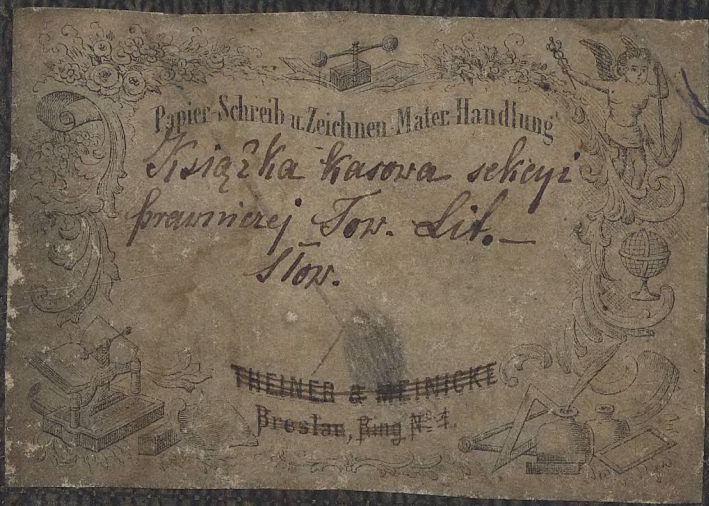 Papier-Schreib u. Zeichnen-Mater. Handlung
Książka kasowa sekcyi
prawniczej Tow. Lit. –
Słow.
THEINER & MEINICKE
Breslau, Ring No. 4.